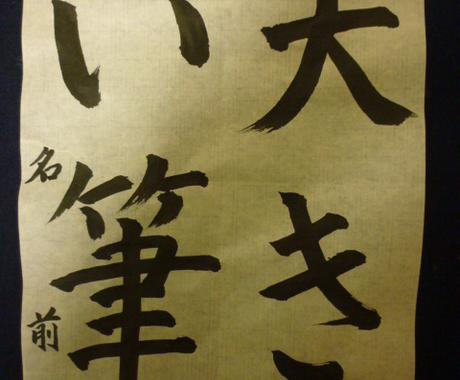 大き
い筆
名前